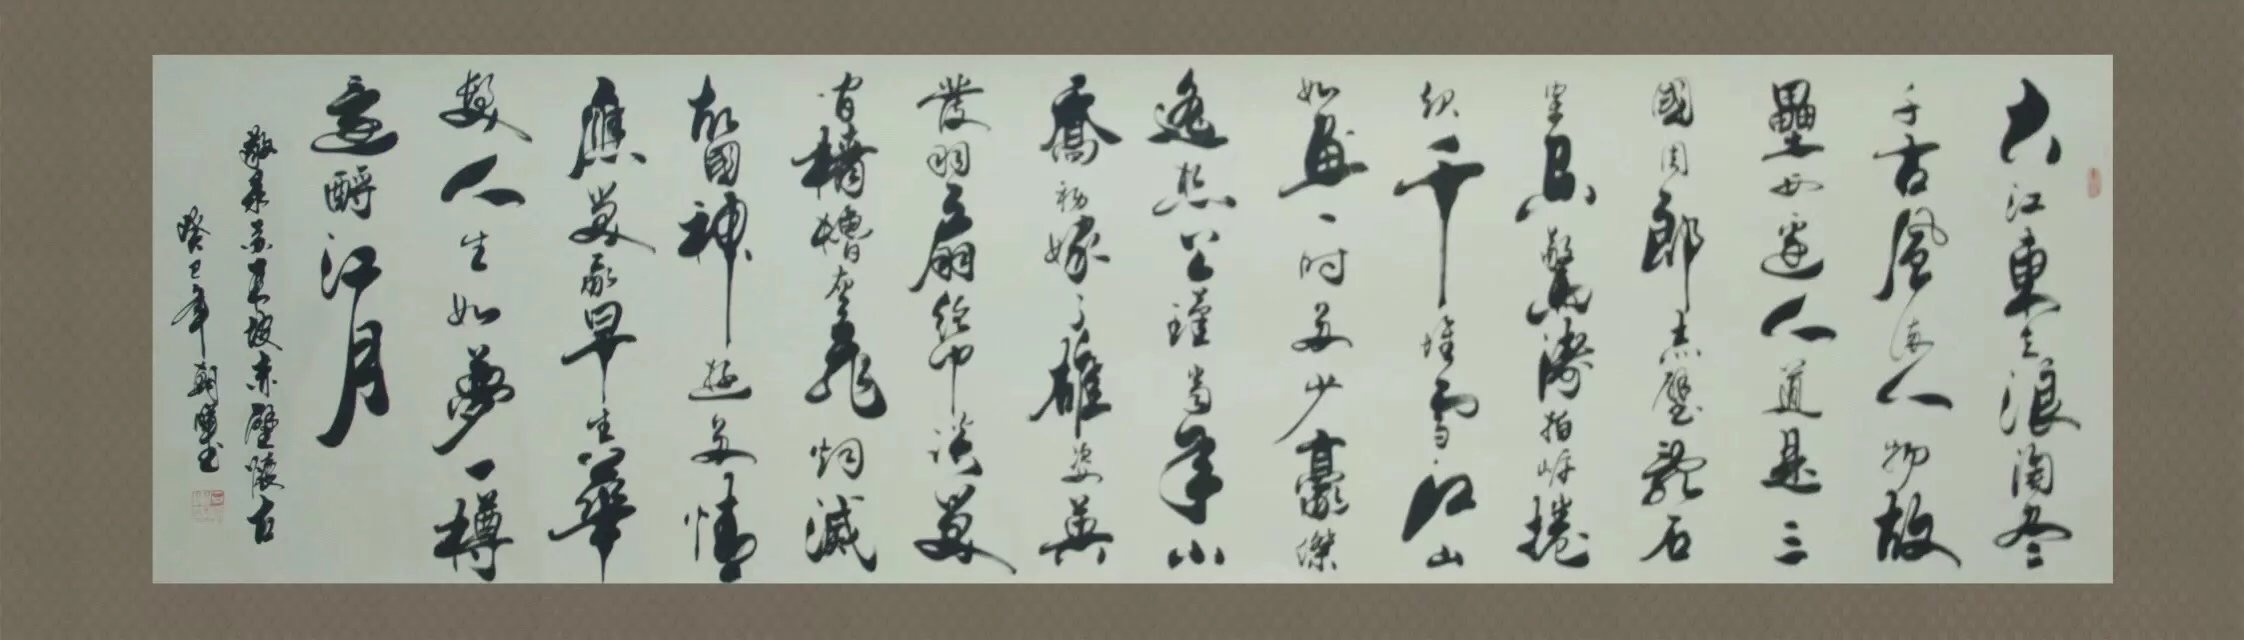 大江東去浪淘盡
千古風流人物故
壘西邊人道是三
國周郎赤壁亂石
穿空驚濤拍岸捲
起千堆雪江山
如畫一時多少豪傑
遙想公瑾當年小
喬初嫁了雄姿英
發羽扇綸巾談笑
間檣櫓灰飛烟滅
故國神遊多情
應笑我早生華
髮人生如夢一樽
還酹江月
敬录苏東坡赤壁懷古
癸巳年